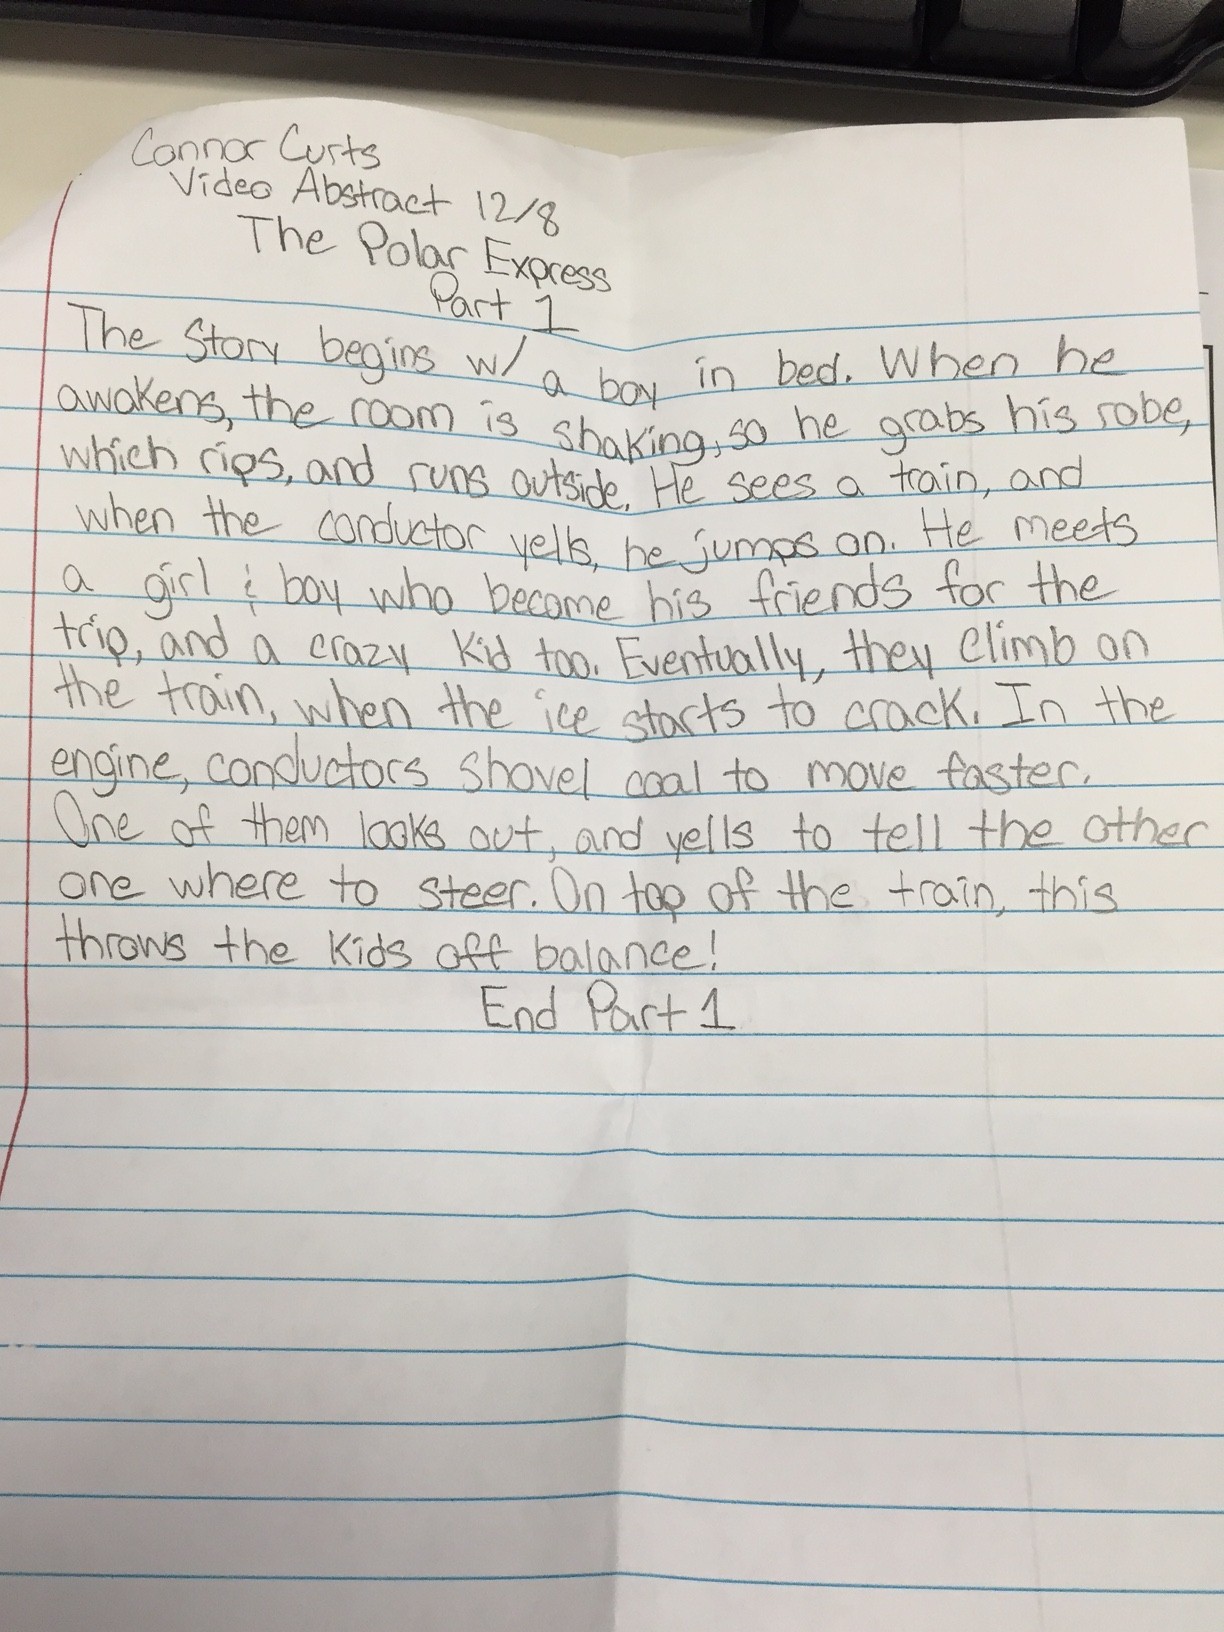 Connor Curts
Video Abstract 12/8
The Polar Express
Part 1
The Story begins w/ a boy in bed. When he
awakens, the room is shaking, so he grabs his robe,
which rips, and runs outside. He sees a train, and
when the conductor yells, he jumps on. He meets
a girl & boy who become his friends for the
trip, and a crazy kid too. Eventually, they climb on
the train, when the ice starts to crack. In the
engine, conductors shovel coal to move faster.
One of them looks out, and yells to tell the other
one where to steer. On top of the train, this
throws the kids off balance!
End Part 1